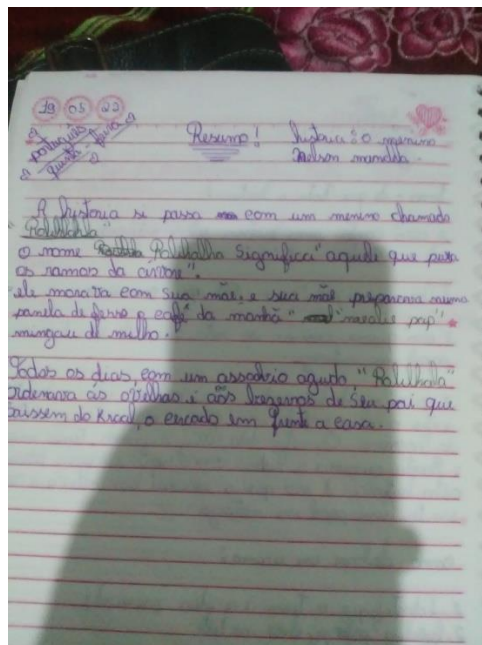 19 05 22
português
quinta-feira
Resumo! história: o menino
Nelson mandela.
A história si passa com um menino chamado
"Rolihlahla"
o nome Rolihlalha Significa "aquele que puxa
os ramos da árvore".
ele morava com sua mãe, e sua mãe preparava numa
panela de ferro o café da manhã "mealie pap"
mingau de milho.
Todos os dias, com um assobio agudo "Rolihlala"
ordenava ás ovelhas e aos bezerros de seu pai que
saissem do Kraal, o cercado em frente a casa.